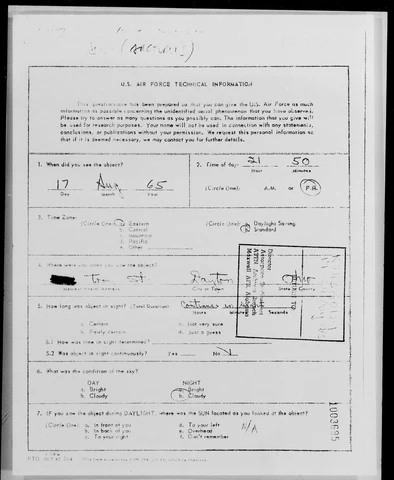 U.S. AIR FORCE TECHNICAL INFORMATION
This questionnaire has been prepared so that you can give the U.S. Air Force as much
information as possible concerning the unidentified aerial phenomenon that you have observed.
Please try to answer as many questions as you possibly can. The information that you give will
be used for research purposes. Your name will not be used in connection with any statements,
conclusions, or publications without your permission. We request this personal information so
that if it is deemed necessary, we may contact you for further details.
1. When did you see the object?
17 Aug 65
Day Month Year
2. Time of day: 21 50
Hour Minutes
(Circle One): A.M. or P.M.
3. Time Zone:
(Circle One): a. Eastern
b. Central
c. Mountain
d. Pacific
e. Other
(Circle One): a. Daylight Saving
b. Standard
4. Where were you when you saw the object?
St. Dayton Ohio
Nearest Postal Address City or Town State or County
5. How long was object in sight? (Total Duration)
Hours Minutes Seconds
a. Certain
b. Fairly certain
c. Not very sure
d. Just a guess
5.1 How was time in sight determined?
5.2 Was object in sight continuously? Yes No
6. What was the condition of the sky?
DAY
a. Bright
b. Cloudy
NIGHT
a. Bright
b. Cloudy
7. IF you saw the object during DAYLIGHT, where was the SUN located as you looked at the object?
(Circle One): a. In front of you
b. In back of you
c. To your right
d. To your left
e. Overhead
f. Don't remember
N/A
Maxwell AFB, Alabama
1003695
FTD